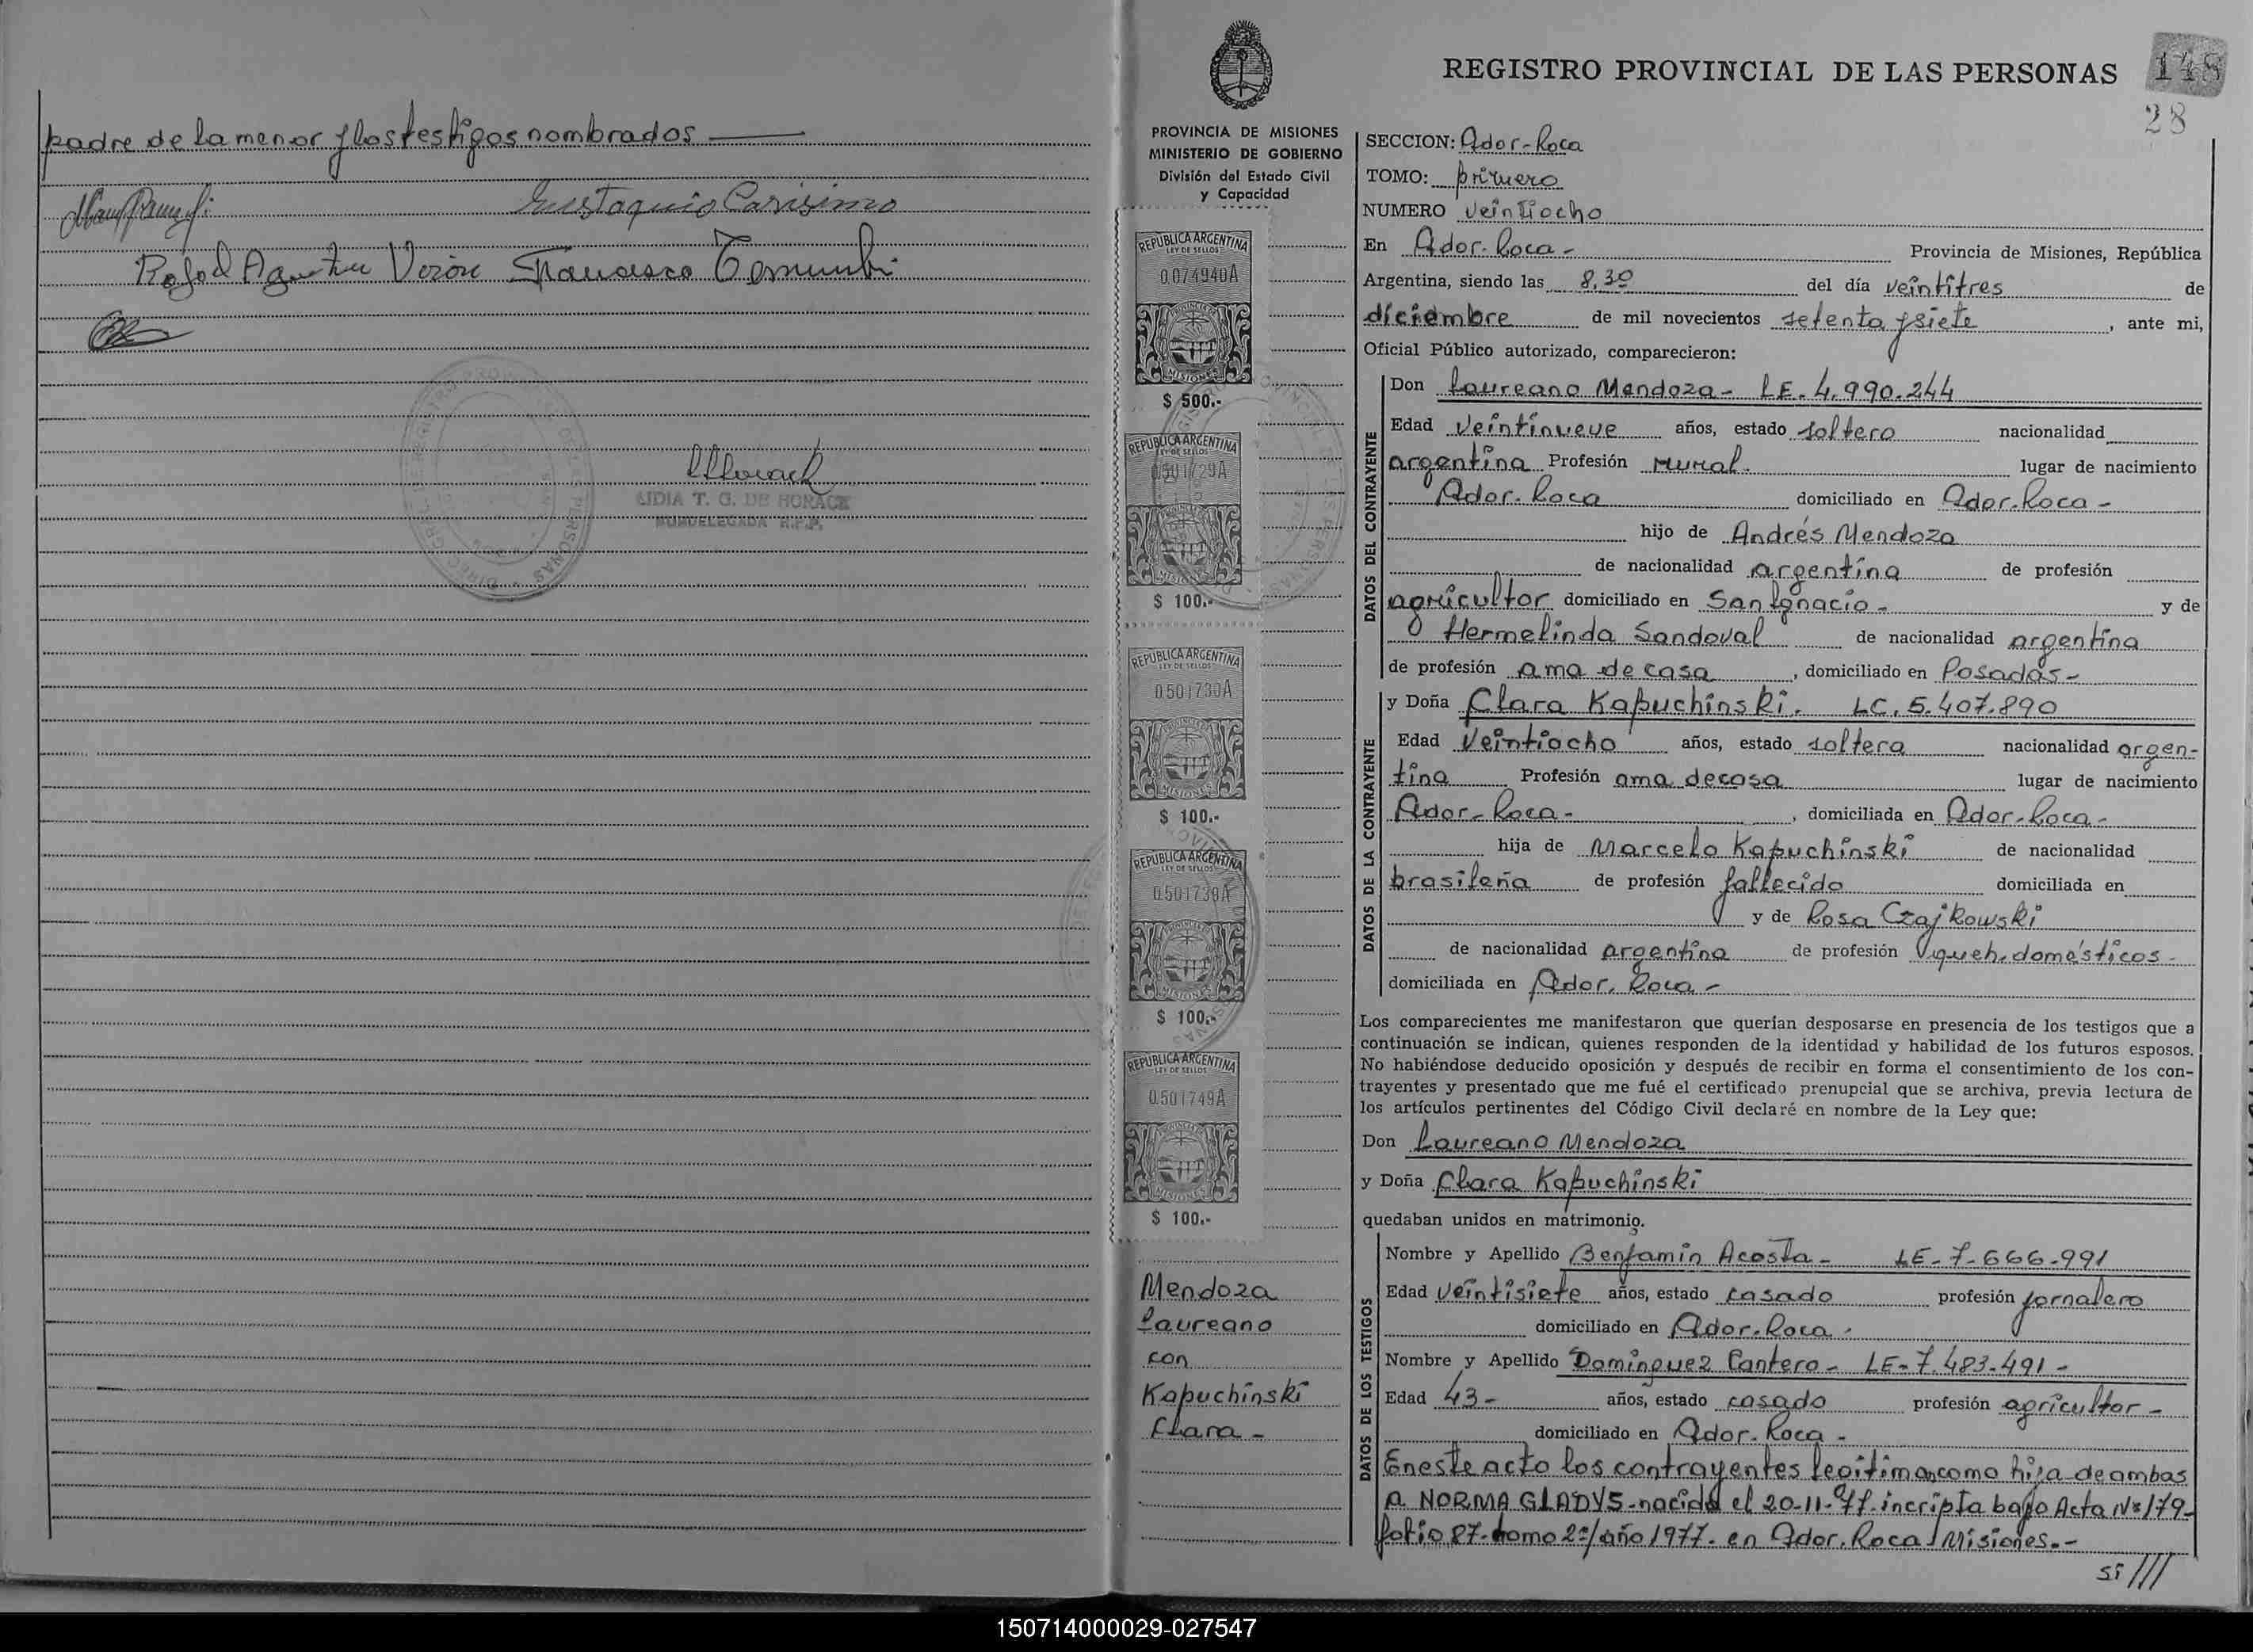 padre de la menor y los testigos nombrados
Eustaquio Carisimo
LIDIA T. G. DE HORACK
SUBDELEGADA R.P.P.
REGISTRO PROVINCIAL DE LAS PERSONAS
148
28
PROVINCIA DE MISIONES
MINISTERIO DE GOBIERNO
División del Estado Civil
y Capacidad
REPUBLICA ARGENTINA
LEY DE SELLOS
0074940A
MISIONES
$ 500.-
REPUBLICA ARGENTINA
LEY DE SELLOS
0501729A
MISIONES
$ 100.-
REPUBLICA ARGENTINA
LEY DE SELLOS
0501730A
MISIONES
$ 100.-
REPUBLICA ARGENTINA
LEY DE SELLOS
0501739A
MISIONES
$ 100.-
REPUBLICA ARGENTINA
LEY DE SELLOS
0501749A
MISIONES
$ 100.-
Mendoza
Laureano
con
Kapuchinski
Clara -
SECCION: Ador-Roca
TOMO: primero
NUMERO veintiocho
En Ador-Roca - Provincia de Misiones, República
Argentina, siendo las 8,30 del día veintitres de
diciembre de mil novecientos setenta y siete, ante mi,
Oficial Público autorizado, comparecieron:
DATOS DEL CONTRAYENTE
Don Laureano Mendoza - LE. 4.990.244
Edad veintinueve años, estado soltero nacionalidad
argentina Profesión rural. lugar de nacimiento
Ador. Roca domiciliado en Ador. Roca -
hijo de Andrés Mendoza
de nacionalidad argentina de profesión
agricultor domiciliado en San Ignacio - y de
Hermelinda Sandoval de nacionalidad argentina
de profesión ama de casa, domiciliado en Posadas -
DATOS DE LA CONTRAYENTE
y Doña Clara Kapuchinski. LC. 5.407.890
Edad Veintiocho años, estado soltera nacionalidad argen-
tina Profesión ama de casa lugar de nacimiento
Ador - Roca -, domiciliada en Ador - Roca -
hija de Marcelo Kapuchinski de nacionalidad
brasileña de profesión fallecido domiciliada en
y de Rosa Czajkowski
de nacionalidad argentina de profesión queh. domésticos -
domiciliada en Ador. Roca -
Los comparecientes me manifestaron que querían desposarse en presencia de los testigos que a
continuación se indican, quienes responden de la identidad y habilidad de los futuros esposos.
No habiéndose deducido oposición y después de recibir en forma el consentimiento de los con-
trayentes y presentado que me fué el certificado prenupcial que se archiva, previa lectura de
los artículos pertinentes del Código Civil declaré en nombre de la Ley que:
Don Laureano Mendoza
y Doña Clara Kapuchinski
quedaban unidos en matrimonio.
DATOS DE LOS TESTIGOS
Nombre y Apellido Benjamin Acosta - LE - 7.666.991
Edad veintisiete años, estado casado profesión jornalero
domiciliado en Ador. Roca -
Nombre y Apellido Dominguez Cantero - LE - 7.483.491 -
Edad 43 - años, estado casado profesión agricultor -
domiciliado en Ador. Roca -
En este acto los contrayentes legitiman como hija de ambas
a NORMA GLADYS - nacida el 20-11-77. incripta bajo Acta Nº 179 -
folio 87 - tomo 2º/año 1977. en Ador. Roca Misiones. -
si ///
150714000029-027547